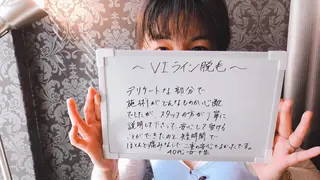 ～VIライン脱毛～
デリケートな部分で
施術がどんなものか心配
でしたが、スタッフの方が丁寧に
説明して下さって、安心して受ける
ことができたのと短時間で
ほとんど痛みなしで二重の安心でよかったです。
40代 女性